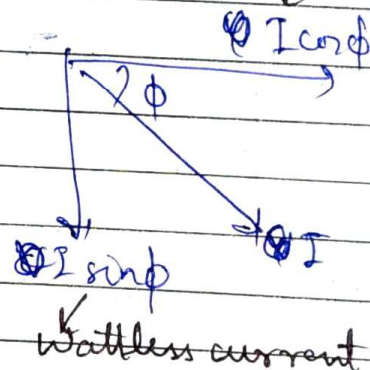 I cosϕ
ϕ
I
I sinϕ
Wattless current